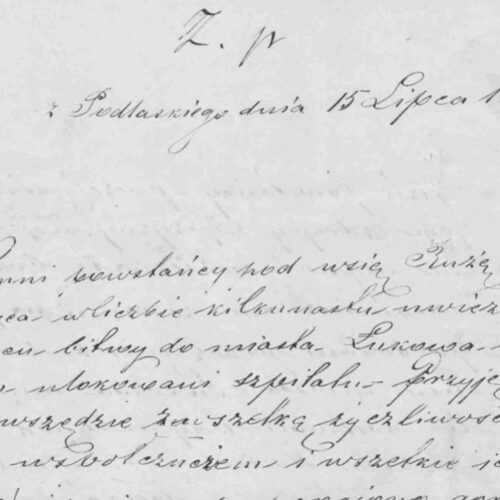 Z. p
z Podlaskiego dnia 15 Lipca 1
nni powstańcy pod wsią Rużą
ca w liczbie kilkunastu uwież
cu bitwy do miasta Łukowa
ulokowani szpitalu przyję
wszędzie zwszelką życzliwośc
współczuciem i wszelkie